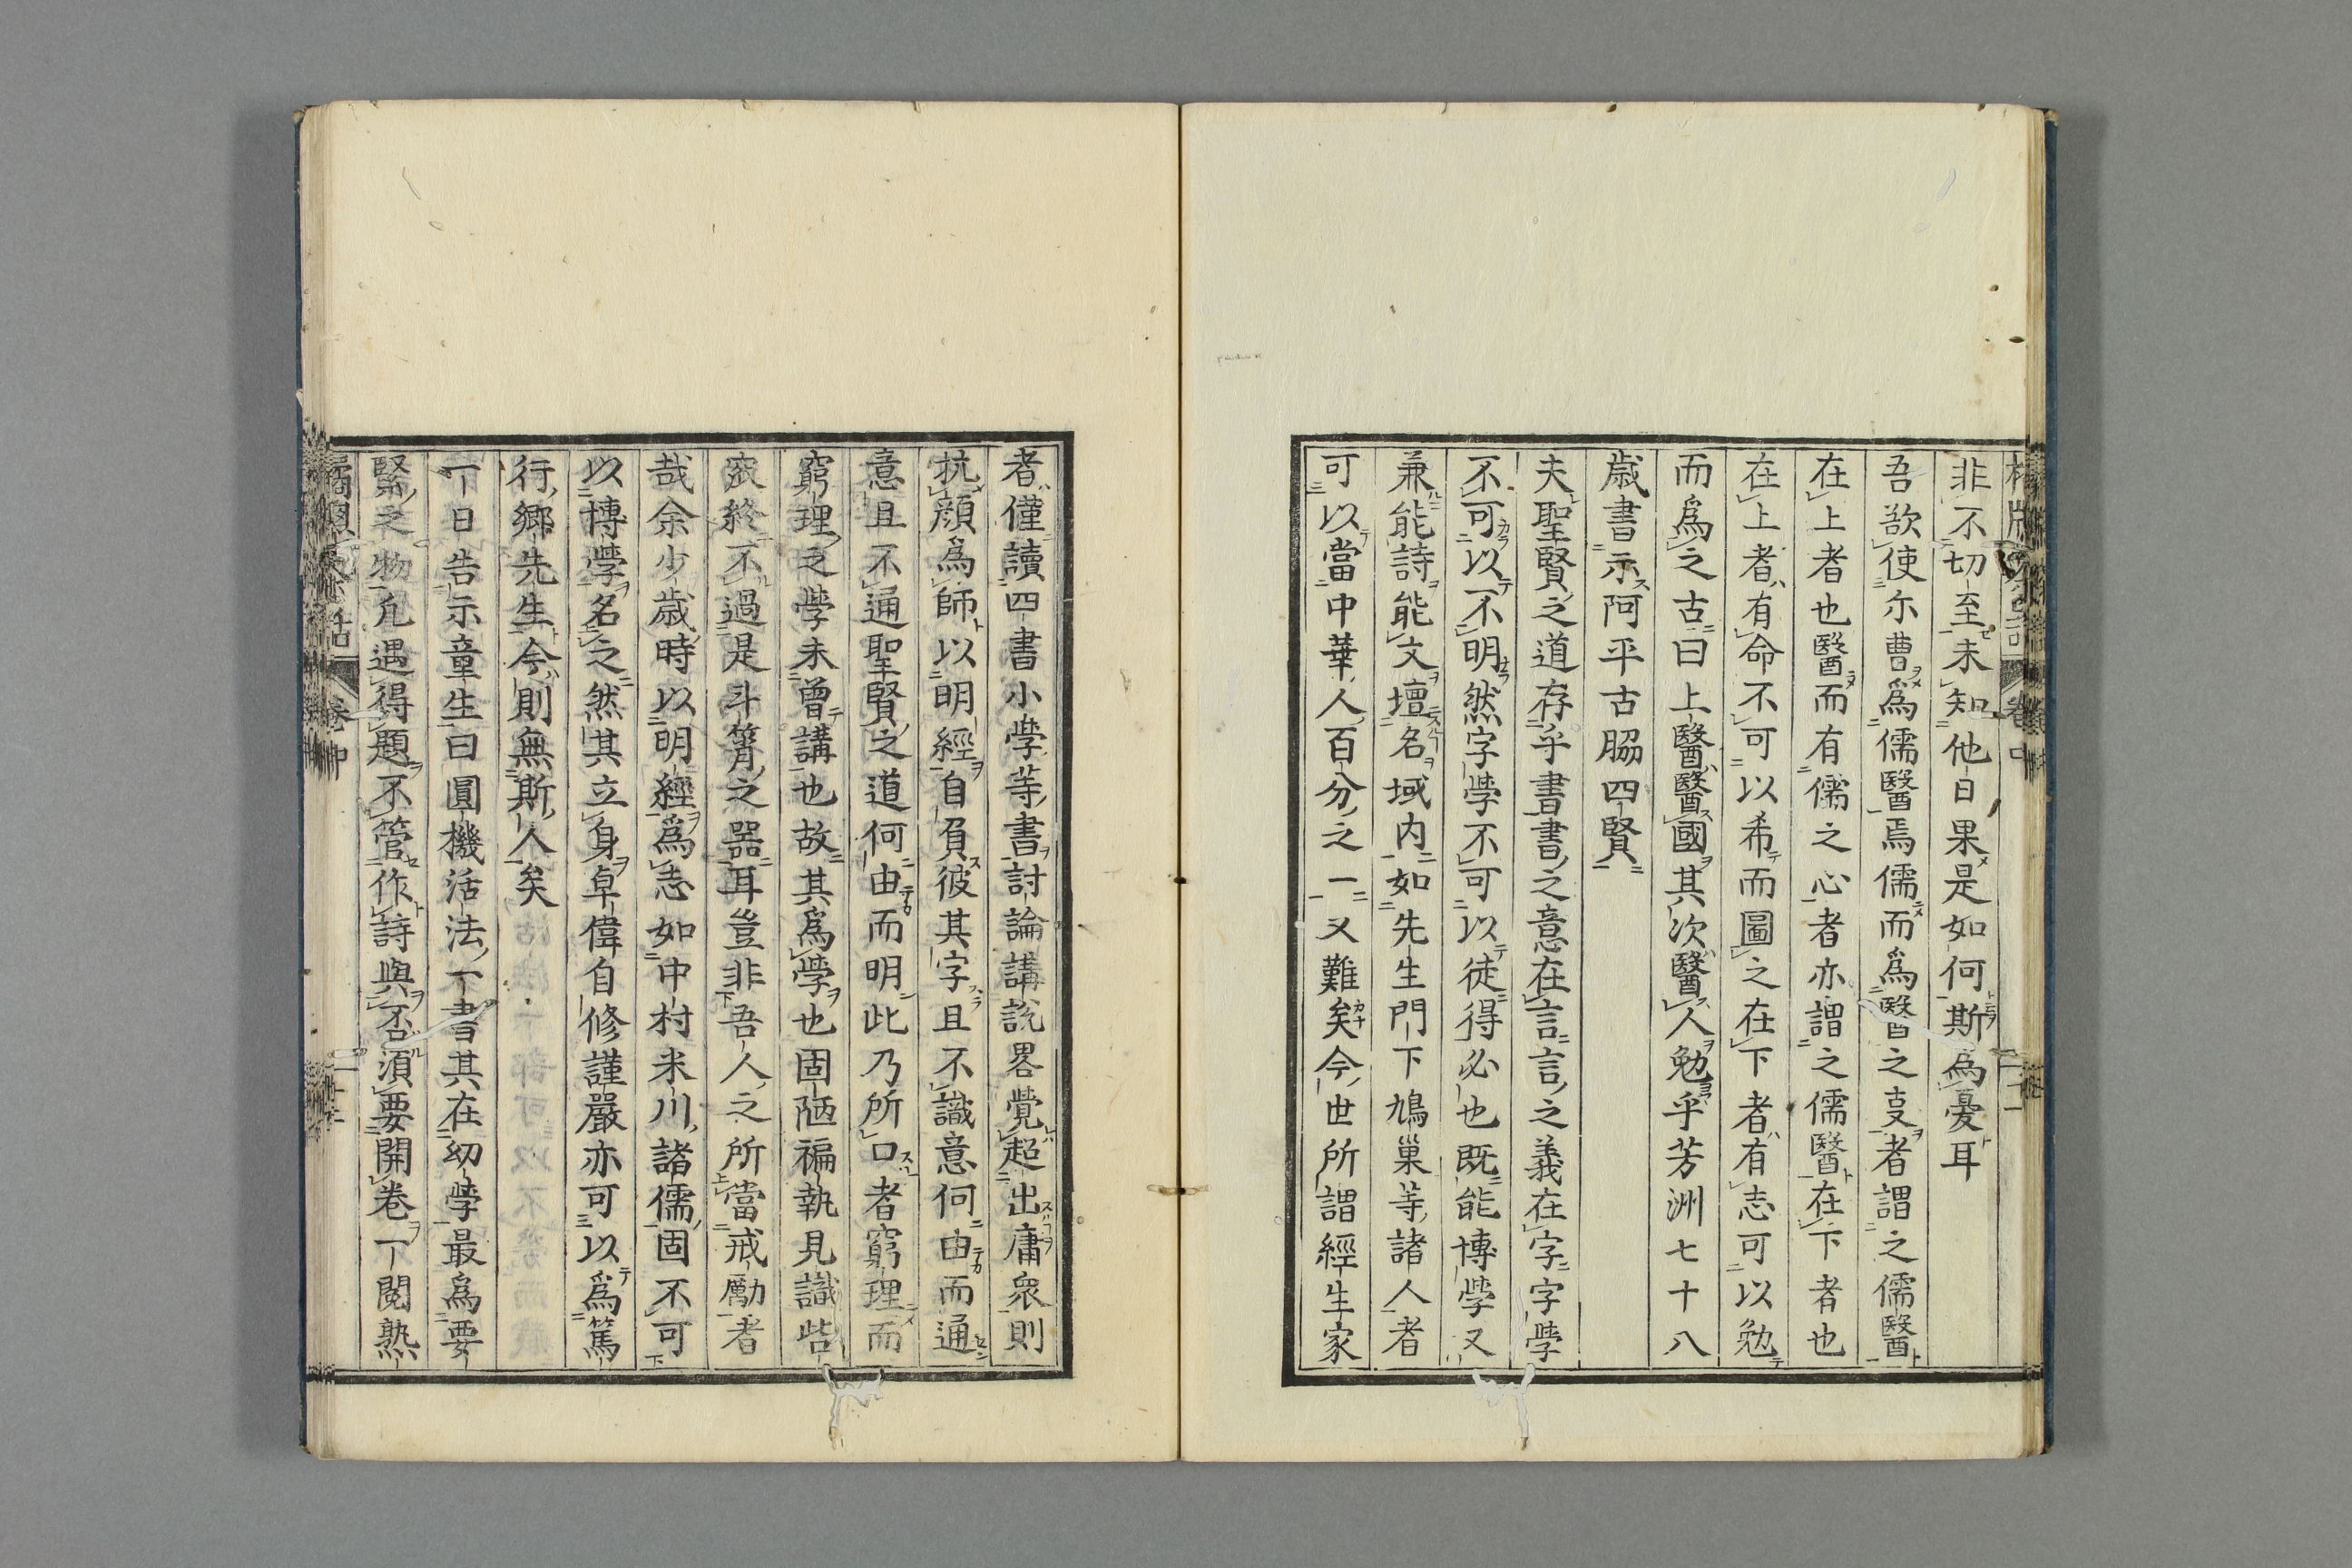 非不切至未知他日果是如何斯為憂耳
吾欲使尓曹爲儒醫焉儒而爲醫之㕝者謂之儒醫
在上者也醫而有儒之心者亦謂之儒醫在下者也
在上者有命不可以希而圖之在下者有志可以勉
而爲之古曰上醫醫國其次醫人勉乎芳洲七十八
歳書示阿平古𦚰四賢
夫聖賢之道存乎書書之意在言言之義在字字學
不可以不明然字學不可以徒得必也既能博學又
兼能詩能文壇名域内如先生門下鳩巢等諸人者
可以當中華人百分之一又難矣今世所謂經生家
者僅讀四書小學等書討論講説畧覺超出庸衆則
抗顔爲師以明經自負彼其字且不識意何由而通
意且不通聖賢之道何由而明此乃所口者窮理而
窮理之學未曾講也故其爲學也固陋褊執見識呰
窳終不過是斗筲之器耳豈非吾人之所當戒勵者
哉余少歳時以明經爲志如中村米川諸儒固不可
以博學名之然其立身卓偉自修謹嚴亦可以爲篤
行郷先生今則無斯人矣
一日告示童生曰圓機活法一書其在幼學最爲要
緊之物凡遇得題不管作詩與否須要開卷一閲熟
橘窓茶話 卷中